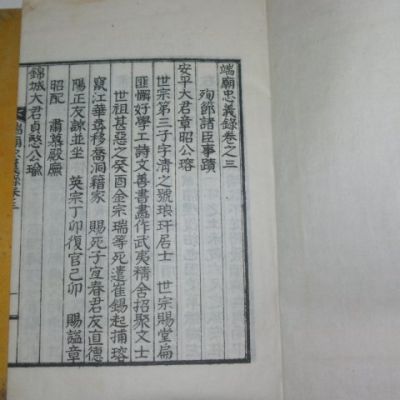 端廟忠義錄卷之三
殉節諸臣事蹟
安平大君章昭公瑢
世宗第三子字清之號琅玕居士 世宗賜堂扁
匪懈好學工詩文善書畫作武夷精舍招聚文士
世祖甚惡之癸酉金宗瑞等死遣崔錫起捕瑢
竄江華尋移喬洞籍家 賜死子宜春君友直德
陽正友諒並坐 英宗丁卯復官己卯 賜謚章
昭配 肅慕殿廡
錦城大君貞愍公瑜
端廟忠義錄卷三